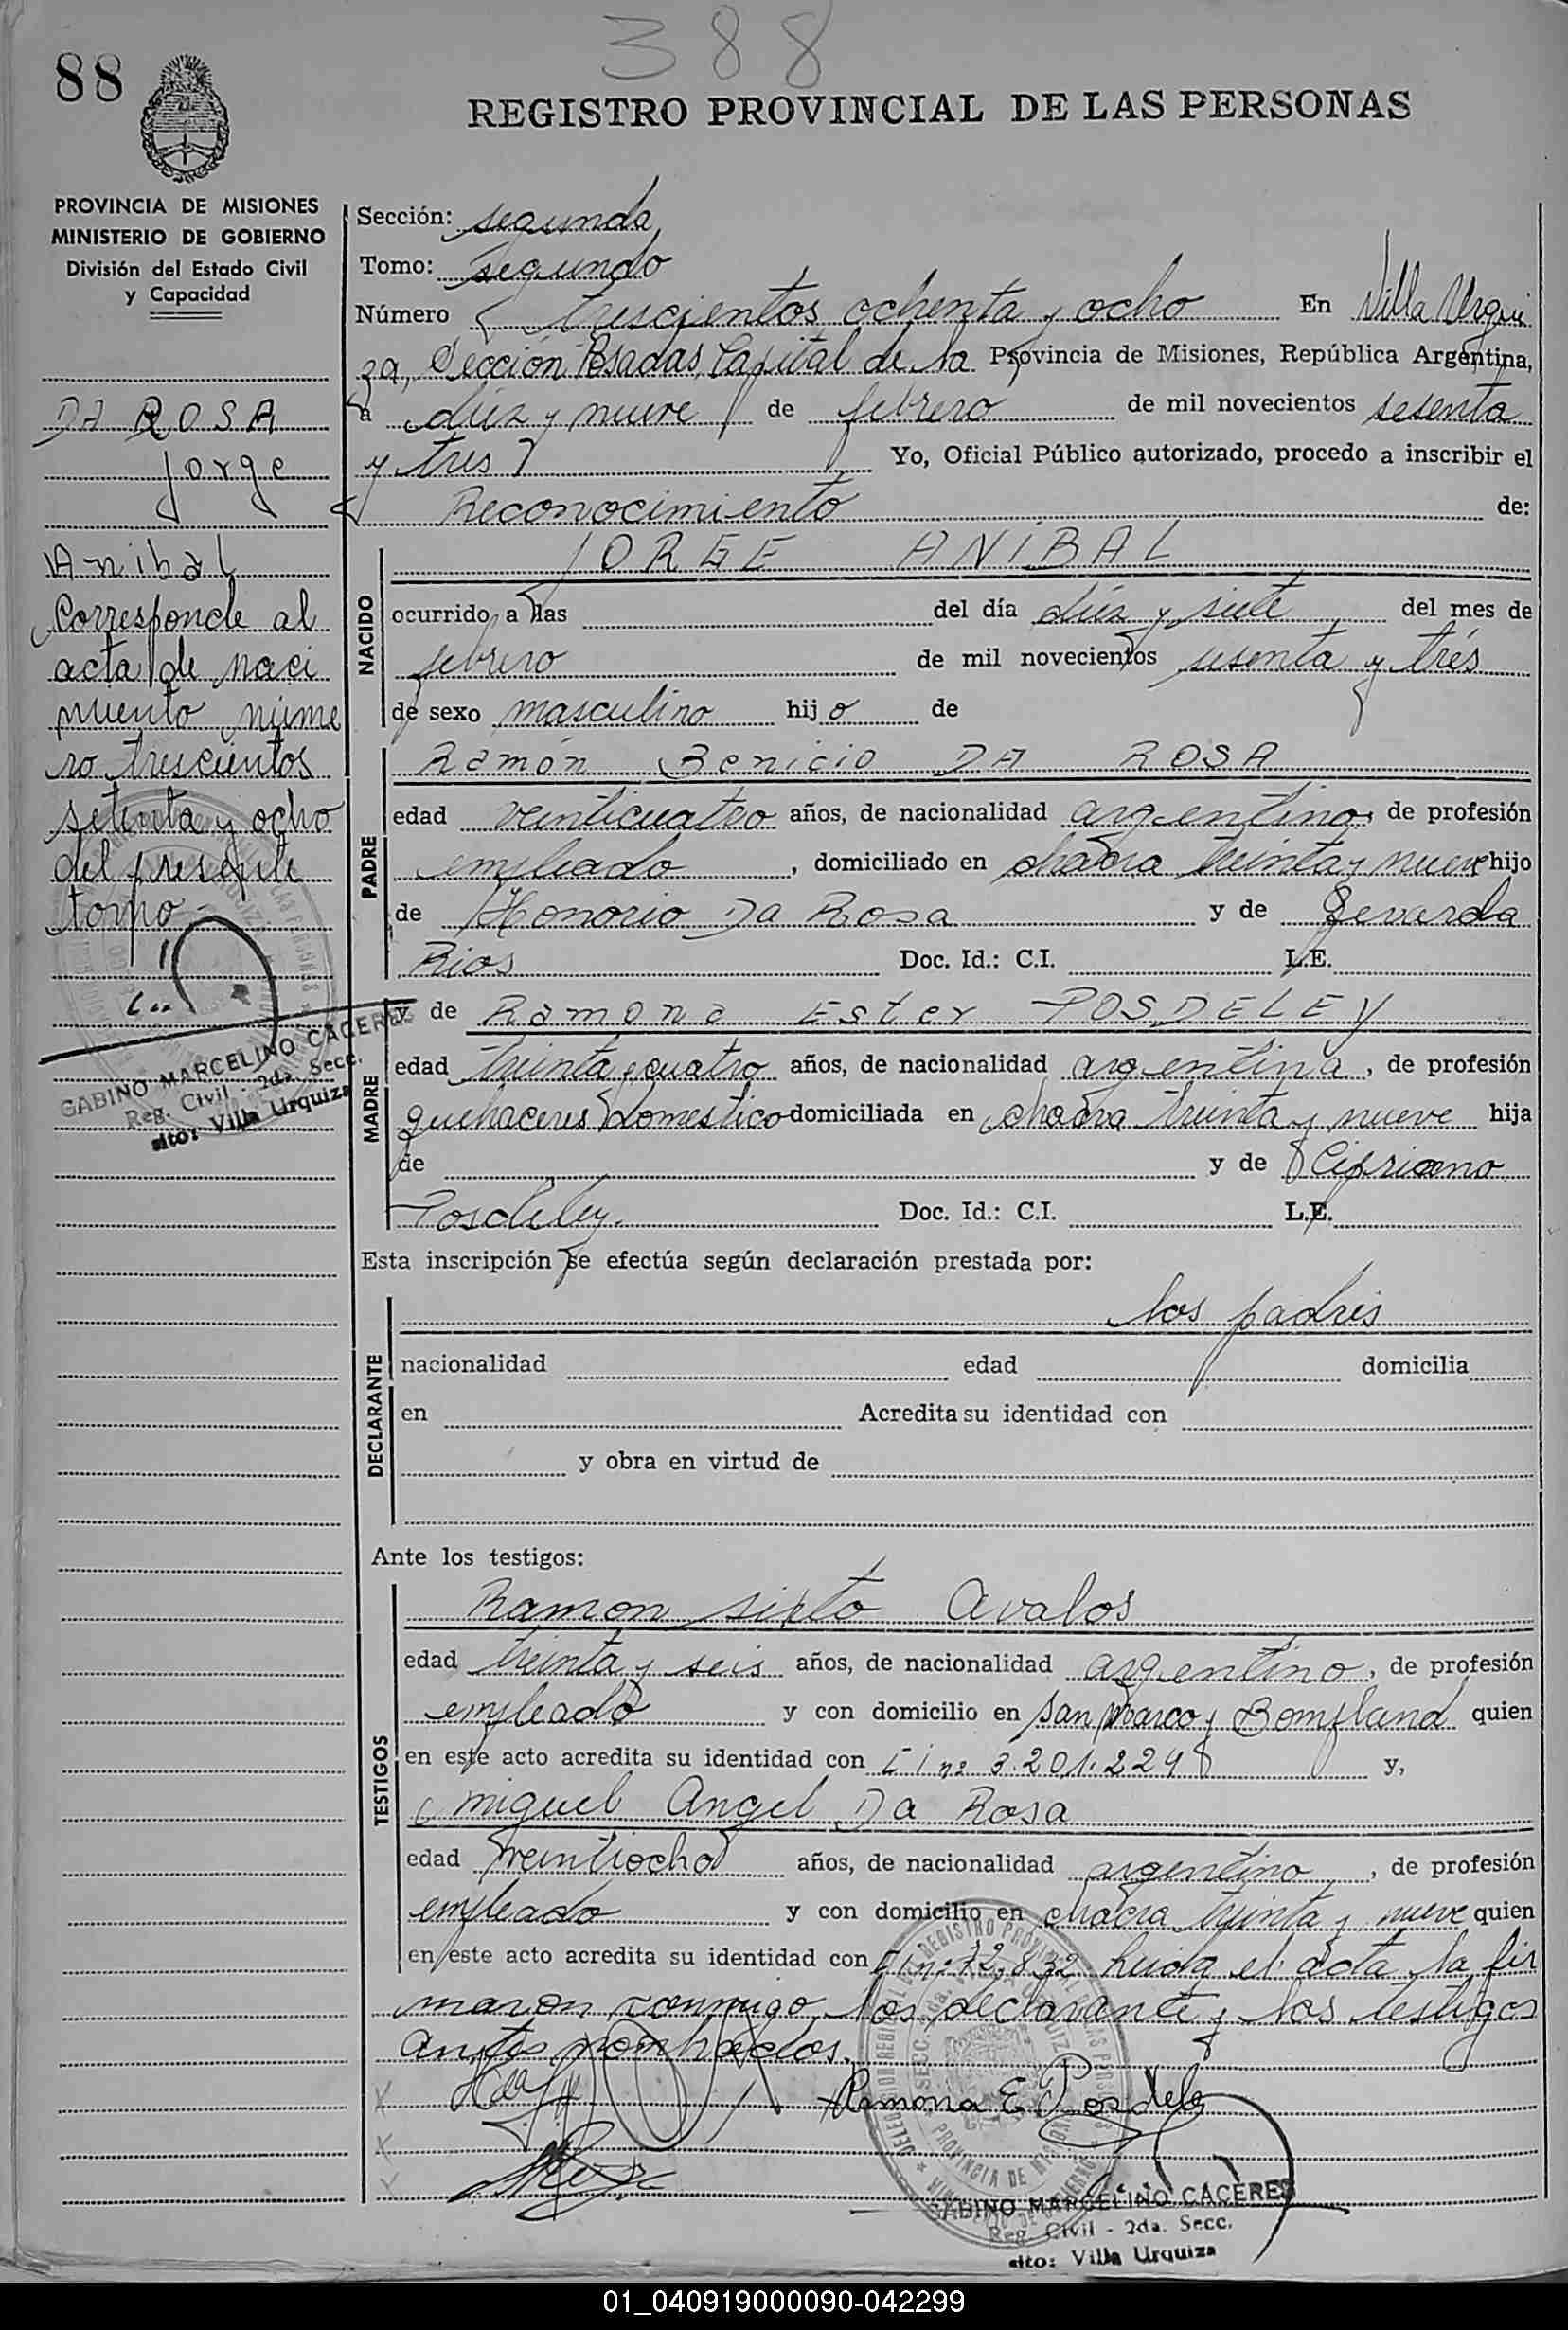 388
88
REGISTRO PROVINCIAL DE LAS PERSONAS
PROVINCIA DE MISIONES
MINISTERIO DE GOBIERNO
División del Estado Civil
y Capacidad
DA ROSA
Jorge
Anibal
Corresponde al
acta de naci
miento núme
ro trescientos
setenta y ocho
del presente
tomo
GABINO MARCELINO CACERES
Reg. Civil - 2da. Secc.
dito: Villa Urquiza
Sección: segunda
Tomo: segundo
Número trescientos ochenta y ocho En Villa Urqui
za, Sección Posadas, Capital de la Provincia de Misiones, República Argentina,
a diez y nueve de febrero de mil novecientos sesenta
y tres Yo, Oficial Público autorizado, procedo a inscribir el
Reconocimiento de:
NACIDO
JORGE ANIBAL
ocurrido a las del día diez y siete del mes de
febrero de mil novecientos sesenta y trés
de sexo masculino hijo de
PADRE
Ramón Benicio DA ROSA
edad veinticuatro años, de nacionalidad argentino, de profesión
empleado, domiciliado en chacra treinta y nueve hijo
de Honorio Da Rosa y de Gevarda
Rios Doc. Id.: C.I. L.E.
MADRE
y de Ramona Ester POSDELEY
edad treinta y cuatro años, de nacionalidad argentina, de profesión
quehaceres domestico domiciliada en chacra treinta y nueve hija
de y de Cipriano
Posdeley. Doc. Id.: C.I. L.E.
Esta inscripción se efectúa según declaración prestada por:
DECLARANTE
los padres
nacionalidad edad domicilia
en Acredita su identidad con
y obra en virtud de
Ante los testigos:
TESTIGOS
Ramon sixto Avalos
edad treinta y seis años, de nacionalidad argentino, de profesión
empleado y con domicilio en San Marco y Bompland quien
en este acto acredita su identidad con C i nº 3.201.224 y,
miguel Angel Da Rosa
edad veintiocho años, de nacionalidad argentino, de profesión
empleado y con domicilio en chacra treinta y nueve quien
en este acto acredita su identidad con C i nº 72.832 leida el acta la fir
maron conmigo los declarante y los testigos
antes nombrados.
Ramona E. Posdeley
GABINO MARCELINO CACERES
Reg. Civil - 2da. Secc.
dito: Villa Urquiza
01_040919000090-042299